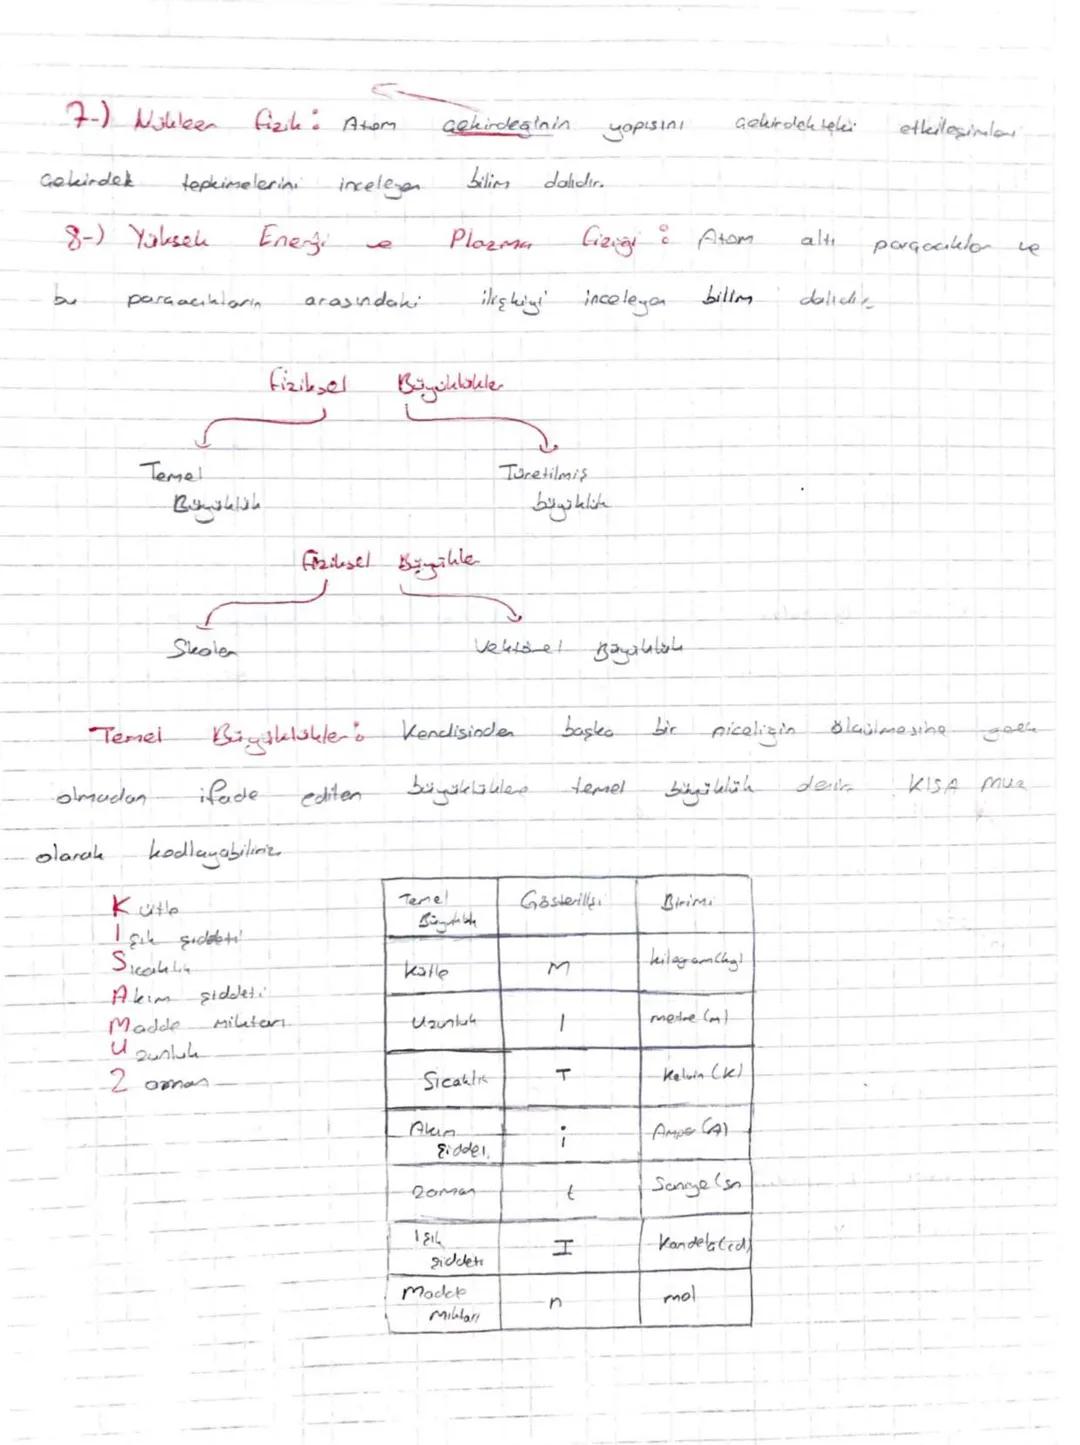 7-) Nükleer fizik: Atom çekirdeğinin yapısını çekirdekteki etkileşimleri
çekirdek tepkimelerini inceleyen bilim dalıdır.
8-) Yüksek Enerji ve Plazma fiziği: Atom altı parçacıklar ve
bu parçacıkların arasındaki ilişkiyi inceleyen bilim dalıdır
Fiziksel Büyüklükler
Temel Büyüklük
Türetilmiş büyüklük
Fiziksel Büyükler
Skaler
Vektörel Büyüklük
Temel Büyüklükler: Kendisinden başka bir niceliğin ölçülmesine gerek
olmadan ifade edilen büyüklüklere temel büyüklük denir. KISA MUZ
olarak kodlayabiliriz
Kütle
Işık şiddeti
Sıcaklık
Akım şiddeti
Madde Miktarı
Uzunluk
Zaman
Temel Büyüklük Gösterilişi Birimi
Kütle M kilogram (kg)
Uzunluk l metre (m)
Sıcaklık T Kelvin (K)
Akım şiddeti i Amper (A)
Zaman t Saniye (sn
Işık şiddeti I Kandela (cd)
Madde Miktarı n mol